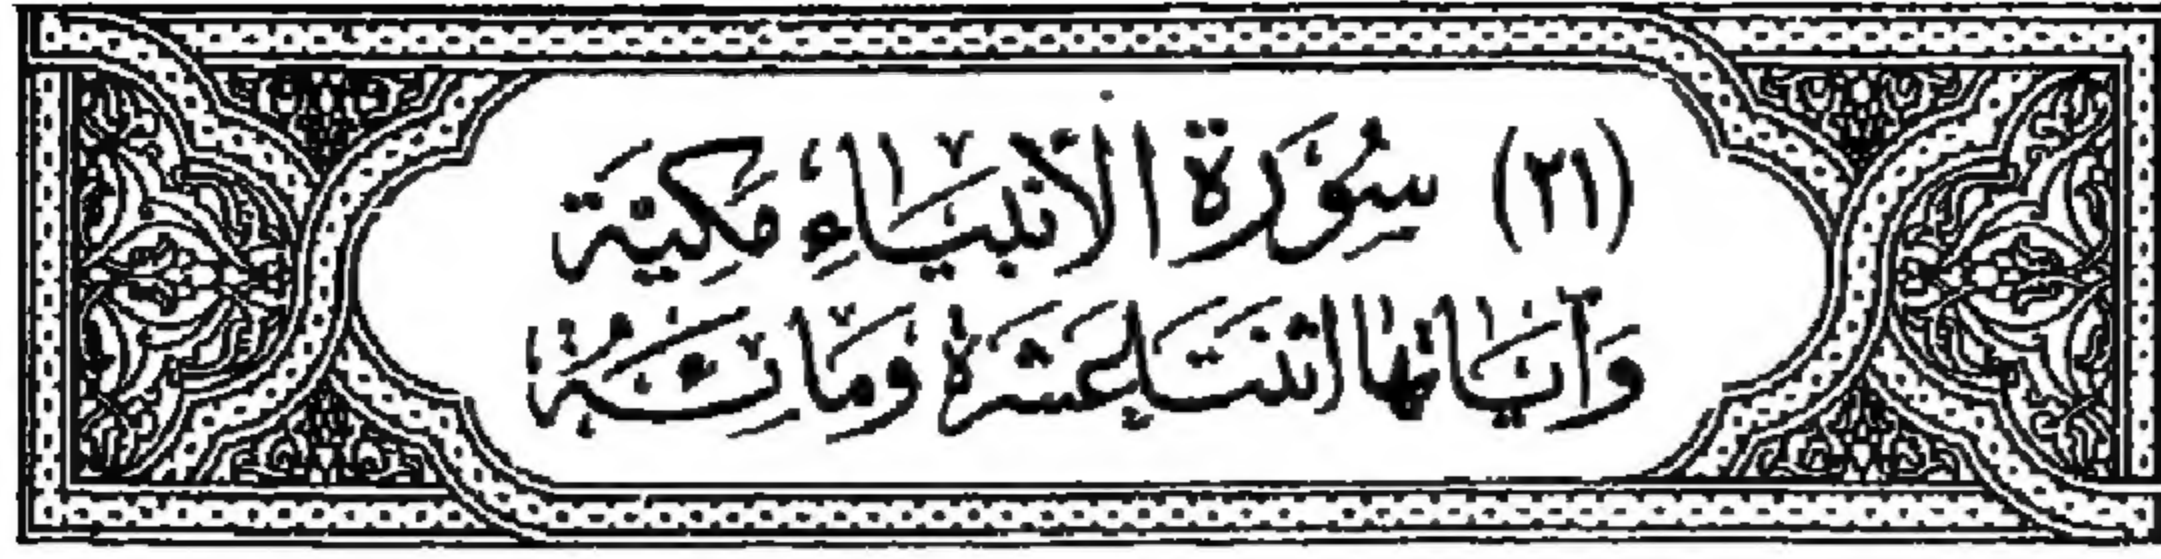 (٢١) سُورَة الأنبيَاءِ مَكيَّة
وَآيَاتها اثنتَا عَشَرَة وَمَائَة